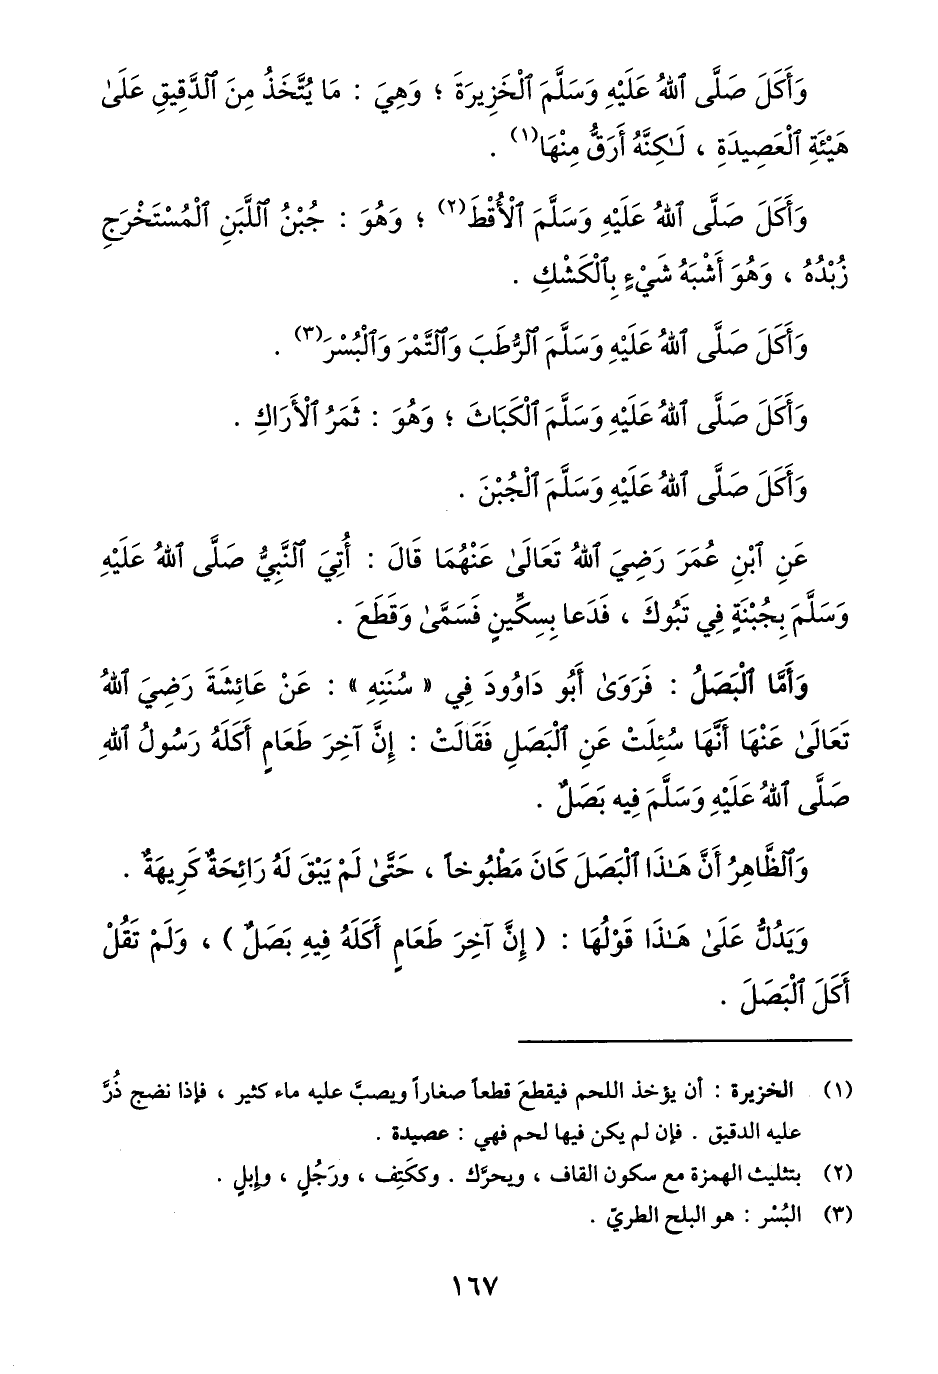 وَأَكَلَ صَلَّى ٱللهُ عَلَيْهِ وَسَلَّمَ ٱلْخَزِيرَةَ ؛ وَهِيَ : مَا يُتَّخَذُ مِنَ ٱلدَّقِيقِ عَلَىٰ
هَيْئَةِ ٱلْعَصِيدَةِ ، لَـٰكِنَّهُ أَرَقُّ مِنْهَا(١) .
وَأَكَلَ صَلَّى ٱللهُ عَلَيْهِ وَسَلَّمَ ٱلْأُقْطَ(٢) ؛ وَهُوَ : جُبْنُ ٱللَّبَنِ ٱلْمُسْتَخْرَجِ
زُبْدُهُ ، وَهُوَ أَشْبَهُ شَيْءٍ بِٱلْكَشْكِ .
وَأَكَلَ صَلَّى ٱللهُ عَلَيْهِ وَسَلَّمَ ٱلرُّطَبَ وَٱلتَّمْرَ وَٱلْبُسْرَ(٣) .
وَأَكَلَ صَلَّى ٱللهُ عَلَيْهِ وَسَلَّمَ ٱلْكَبَاثَ ؛ وَهُوَ : ثَمَرُ ٱلْأَرَاكِ .
وَأَكَلَ صَلَّى ٱللهُ عَلَيْهِ وَسَلَّمَ ٱلْجُبْنَ .
عَنِ ٱبْنِ عُمَرَ رَضِيَ ٱللهُ تَعَالَىٰ عَنْهُمَا قَالَ : أُتِيَ ٱلنَّبِيُّ صَلَّى ٱللهُ عَلَيْهِ
وَسَلَّمَ بِجُبْنَةٍ فِي تَبُوكَ ، فَدَعا بِسِكِّينٍ فَسَمَّىٰ وَقَطَعَ .
وَأَمَّا ٱلْبَصَلُ : فَرَوَىٰ أَبُو دَاوُودَ فِي « سُنَنِهِ » : عَنْ عَائِشَةَ رَضِيَ ٱللهُ
تَعَالَىٰ عَنْهَا أَنَّهَا سُئِلَتْ عَنِ ٱلْبَصَلِ فَقَالَتْ : إِنَّ آخِرَ طَعَامٍ أَكَلَهُ رَسُولُ ٱللهِ
صَلَّى ٱللهُ عَلَيْهِ وَسَلَّمَ فِيهِ بَصَلٌ .
وَٱلظَّاهِرُ أَنَّ هَـٰذَا ٱلْبَصَلَ كَانَ مَطْبُوخاً ، حَتَّىٰ لَمْ يَبْقَ لَهُ رَائِحَةٌ كَرِيهَةٌ .
وَيَدُلُّ عَلَىٰ هَـٰذَا قَوْلُهَا : ( إِنَّ آخِرَ طَعَامٍ أَكَلَهُ فِيهِ بَصَلٌ ) ، وَلَمْ تَقُلْ
أَكَلَ ٱلْبَصَلَ .
(١) الخزيرة : أن يؤخذ اللحم فيقطعَ قطعاً صغاراً ويصبَّ عليه ماء كثير ، فإذا نضج ذُرَّ
عليه الدقيق . فإن لم يكن فيها لحم فهي : عصيدة .
(٢) بتثليث الهمزة مع سكون القاف ، ويحرَّك . وككَتِف ، ورَجُلٍ ، وإبلٍ .
(٣) البُسْر : هو البلح الطريّ .
١٦٧